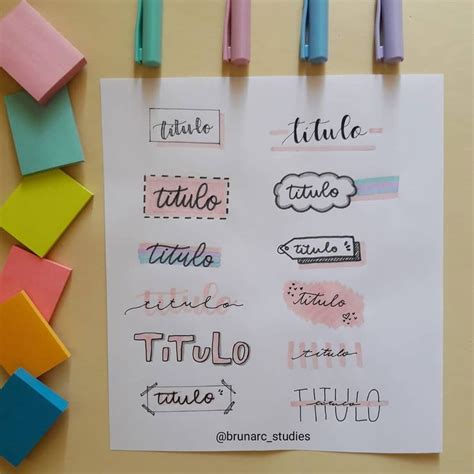 titulo titulo
titulo titulo
titulo titulo
titulo titulo
TiTuLO titulo
titulo TITULO
titulo
@brunarc_studies